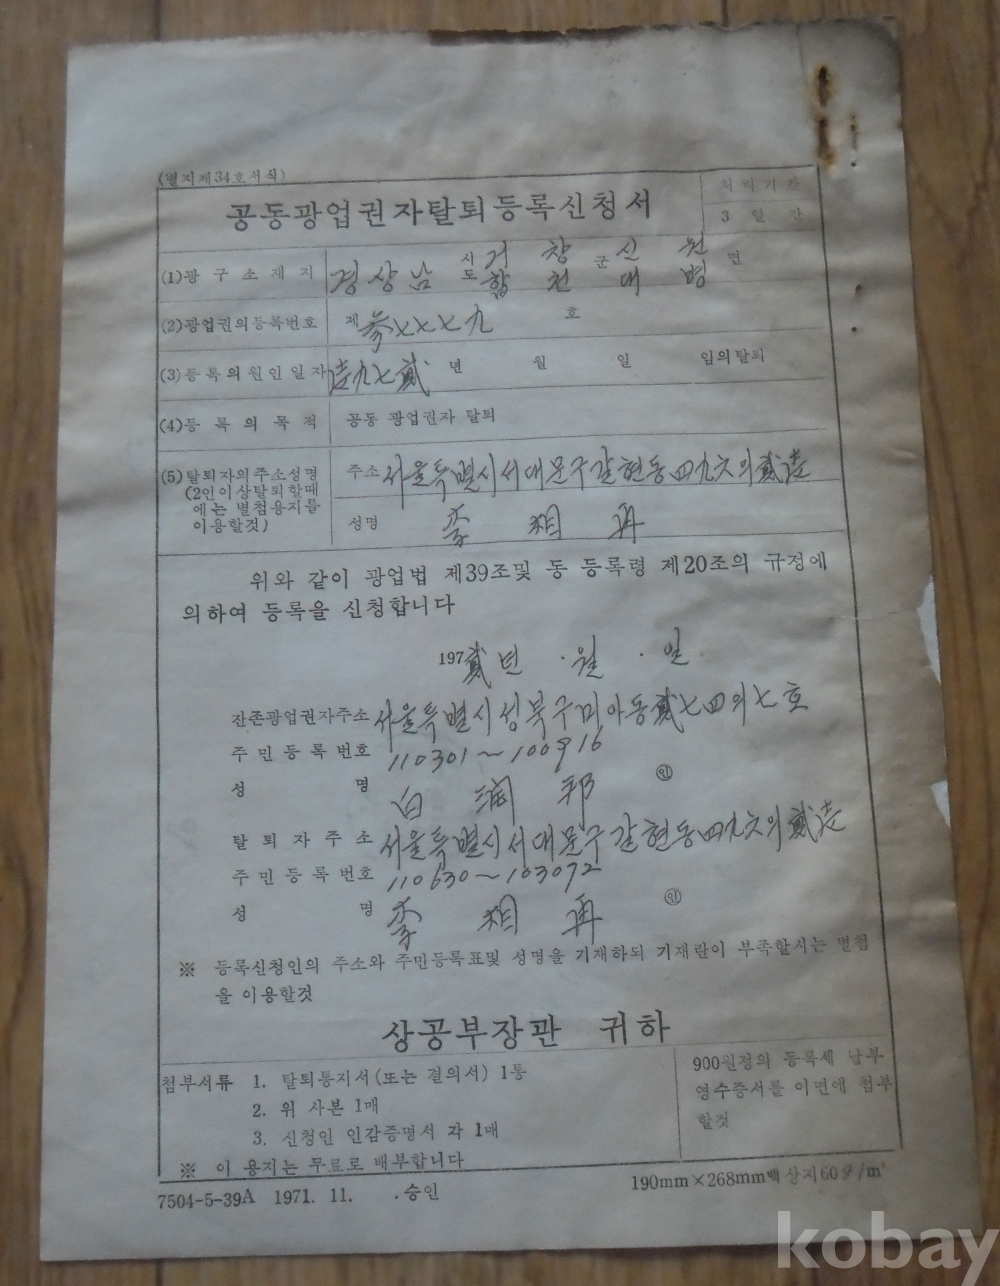 (별지제34호서식)
공동광업권자탈퇴등록신청서
처리기간
3 일 간
(1)광 구 소 재 지 경상남 시도 거창 합천 군 신원 대병 면
(2)광업권의등록번호 제 参七七七九 호
(3)등록의원인일자 壱九七貳 년 월 일 임의탈퇴
(4)등 록 의 목 적 공동 광업권자 탈퇴
(5)탈퇴자의주소성명
(2인이상탈퇴할때
에는 별첨용지를
이용할것)
주소 서울특별시서대문구갈현동四九六의貳壱
성명 李 相 再
위와 같이 광업법 제39조및 동 등록령 제20조의 규정에
의하여 등록을 신청합니다
197貳년 . 월 . 일
잔존광업권자주소 서울특별시성북구미아동貳七四의七호
주민등록번호 110301~100916
성 명 白 潤 邦 ㊞
탈퇴자주소 서울특별시서대문구갈현동四九六의貳壱
주민등록번호 110630~103072
성 명 李 相 再 ㊞
※ 등록신청인의 주소와 주민등록표및 성명을 기재하되 기재란이 부족할시는 별첨
을 이용할것
상공부장관 귀하
첨부서류 1. 탈퇴통지서(또는 결의서) 1통
2. 위 사본 1매
3. 신청인 인감증명서 각 1매
※ 이 용지는 무료로 배부합니다
900원정의 등록세 납부
영수증서를 이면에 첨부
할것
7504-5-39A 1971. 11. .승인
190mm×268mm백상지60g/m²
kobay